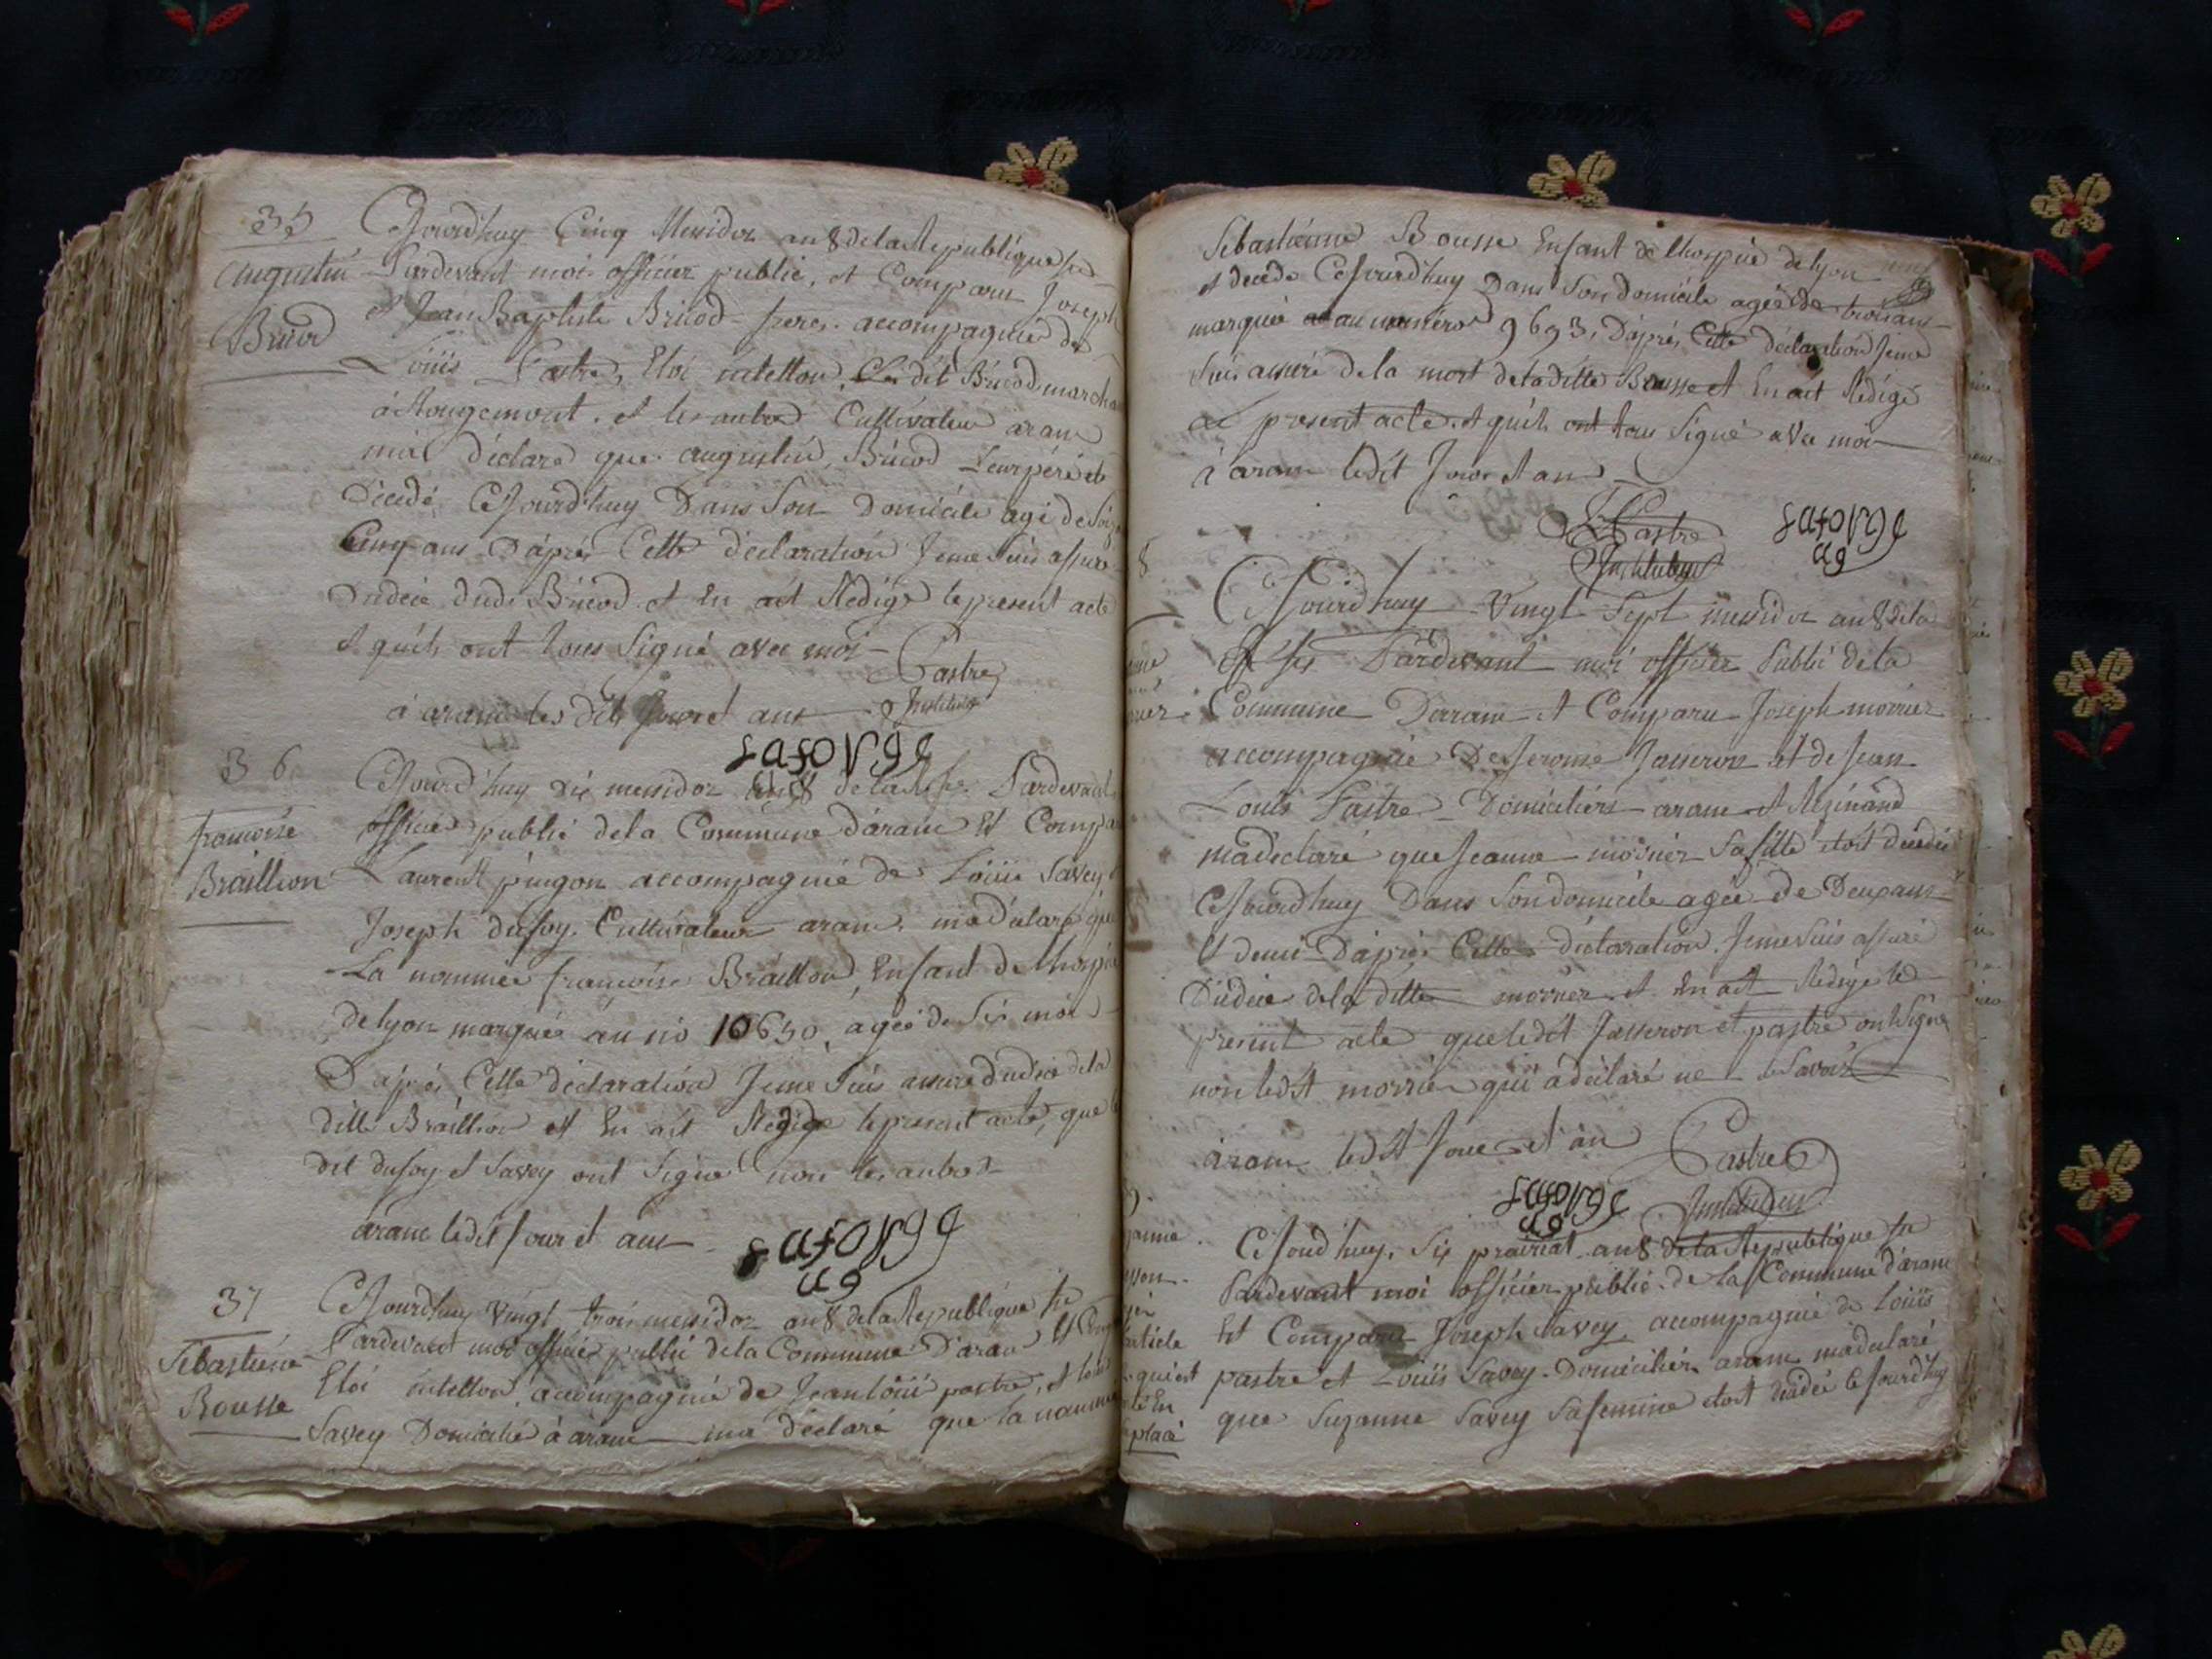 35
augustin
Bricod
Cejourd'huy Cinq Messidor an 8 de la Republique fse
Pardevant moi officier public, et Comparu Joseph
et Jean Baptiste Bricod freres accompagnié de
Louis Pastre, Eloi intellon, Les dit Bricod march
à Rougemont. et les autre Cultivateur aranc
m'a déclaré que augustin Bricod Leur pére et
Décedé Cejourd'huy Dans Son Domicile agé de Soi
Cinq ans D'apré Cette déclaration Jeme Suis assuré
Dudecé dudi Bricod et En ait Rédigé le present acte
et quils ont tous Signé avec moi
Pastre
à aranc les dits Jour et an
36
francoise
Braillion
Cejourd'huy Dix messidor an 8 de la Rep. Pardevant
officier public de la Commune d'aranc Et Compa
Laurent pingon accompagnié de Louis Savey
Joseph dufoy Cultivateur aranc, ma déclaré que
La nommée francoise Braillon, Enfant de Lhospice
de lyon marquée au no 10650, ageé de Six mois
D'apré Cette déclaration Jeme Suis assuré dudecé de la
ditte Braillion et En ait Rédigé le present acte, que
dit dufoy et Savey ont Signé non les autres
aranc ledit Jour et an
37
Sebastiene
Bousse
Cejourd'huy Vingt trois messidor an 8 de la Republique fse
Pardevant moi officier public de la Commune D'aranc Et Comp
Eloi intellon accompagnié de Jean loüis pastre, et louis
Savey Domicilié à aranc ma déclaré que la nommée
Sebastienne Bousse Enfant de lhospice de lyon
et decédé Cejourd'huy Dans Son domicile ageé de trois ans
marquée au numéro 9693, D'apré, Cette déclaration Jeme
Suis assuré de la mort de laditte Bousse et En ait Rédigé
le present acte et quils ont tous Signé avec moi
à aranc ledit Jour et an
Pastre
Cejourd'huy Vingt Sept messidor an 8 de la
Rep fse Pardevant moi officier Public de la
Commune Daranc et Comparu Joseph morrier
accompagnié De Jerome Jasseron et de Jean
Louis Pastre Domiciliérs aranc et Rezinand
madéclaré que Jeanne morrier Sa fille etoit décédée
Cejourd'huy Dans Son domicile ageé de Deux ans
Et demi D'apré Cette déclaration Jeme Suis assuré
Dudecé de la ditte morrier et En ait Rédigé le
present acte que ledit Jasseron et pastre ont Signé
non ledit morrier qui a déclaré ne le Savoir
aranc ledit Jour et an
Pastre
Cejoudhuy, Six prairiat an 8 de la Republique fse
Pardevant moi officier public de la Commune d'aranc
Et Comparu Joseph Savey accompagnié de loüis
pastre et Loüis Savey Domiciliér aranc madéclaré
que Suzanne Savey Sa femme etoit décédée Cejourdhuy